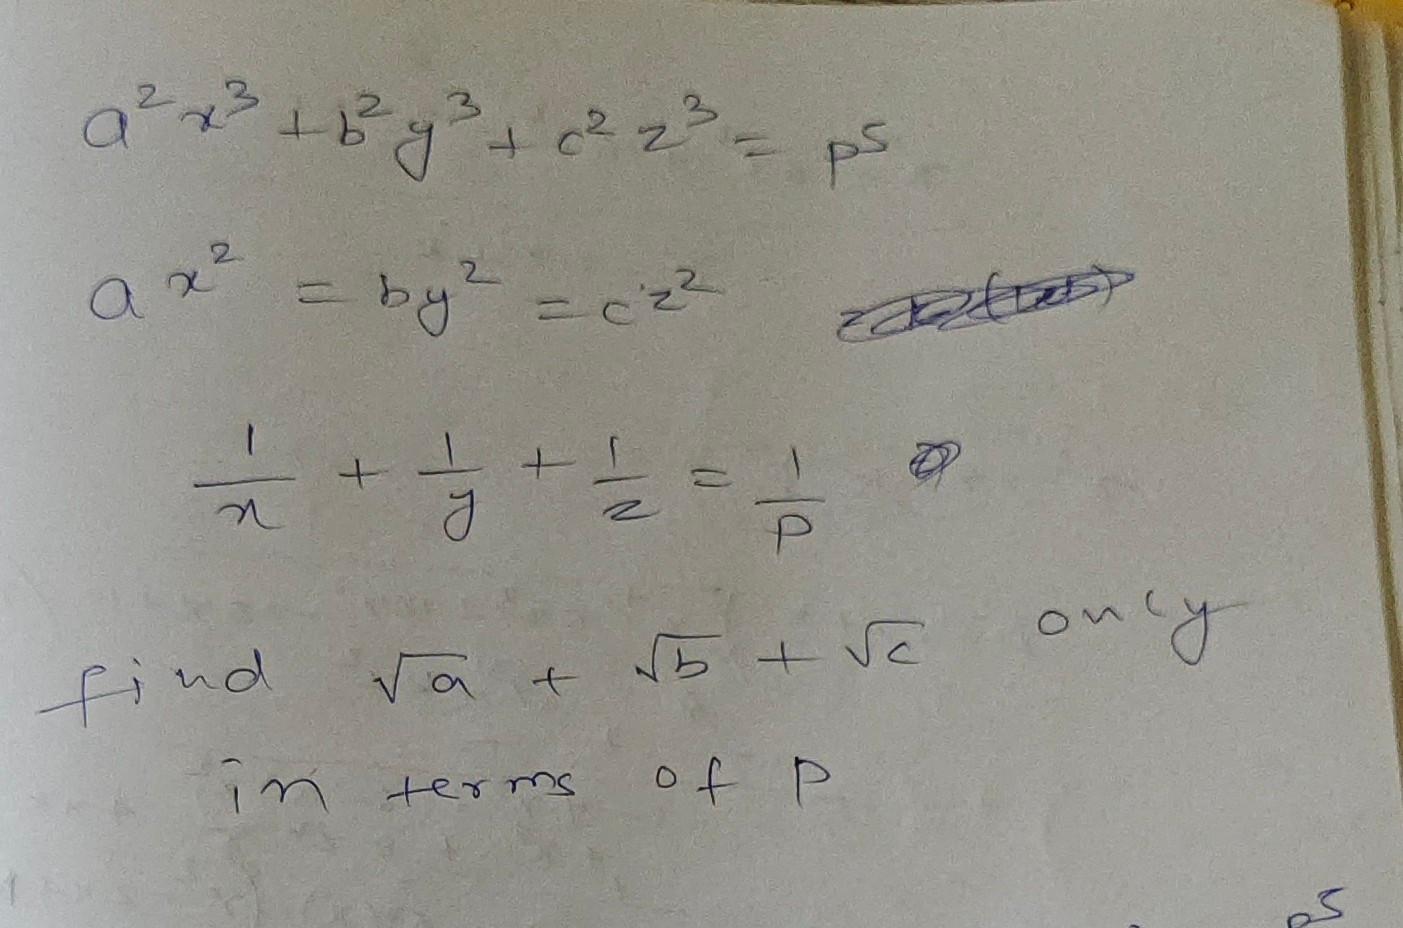 a²x³ + b²y³ + c²z³ = p⁵
ax² = by² = cz²
1/x + 1/y + 1/z = 1/p
find √a + √b + √c only
in terms of p
p⁵